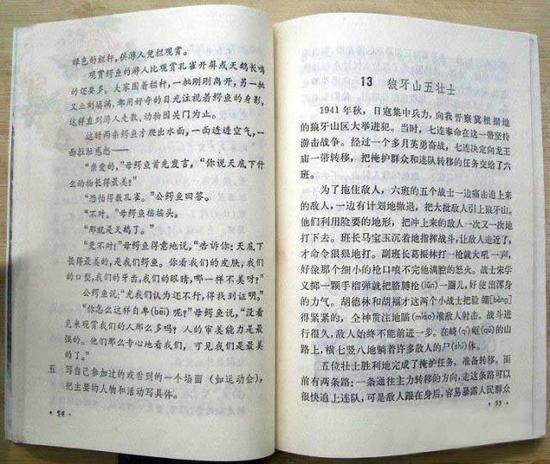 绿色的栏杆，供游人凭栏观赏。
观赏鳄鱼的游人比观赏孔雀开屏或天鹅长鸣
的还要多。大家围着栏杆，一批刚刚离开，另一批
又立刻站满，都用好奇的目光注视着鳄鱼的身影，
这样直到游人走散，动物园关门为止。
这时两条鳄鱼才爬出水面，一面透透空气，一
面拉拉思想——
“亲爱的，”母鳄鱼首先发言，“你说天底下什
么动物长得最美？”
“恐怕得数孔雀。”公鳄鱼回答。
“不对。”母鳄鱼摇摇头。
“那就是天鹅了。”
“更不对！”母鳄鱼得意地说，“告诉你：天底下
长得最美的，是我们鳄鱼。你看我们的皮肤，我们
的口型，我们的牙齿，我们的眼睛，哪一样不美呀？”
公鳄鱼说：“光我们认为还不行，得找到证明。”
“你怎么这样自卑(bēi)呢？”母鳄鱼说，“没看
见来观赏我们的人那么多吗？人的审美能力是最
强的。他们那么专心地看我们，可见我们是最美
的了。”
五　写自己参加过的或看到的一个场面（如运动会），
把主要的人物和活动写具体。
· 54 ·
13　狼牙山五壮士
1941年秋，日寇集中兵力，向我晋察冀根据地
的狼牙山区大举进犯。当时，七连奉命在这一带坚持
游击战争。经过一个多月英勇奋战，七连决定向龙王
庙一带转移，把掩护群众和连队转移的任务交给了六
班。
为了拖住敌人，六班的五个战士一边痛击追上来
的敌人，一边有计划地撤退，把大批敌人引上狼牙山。
他们利用险要的地形，把冲上来的敌人一次又一次地
打下去。班长马宝玉沉着地指挥战斗，让敌人走近了，
才命令狠狠地打。副班长葛振林打一枪就大吼一声，
好像那个细小的枪口喷不完他满腔的怒火。战士宋学
义扔一颗手榴弹就把胳膊抡(lūn)一圈儿，好使出浑身
的力气。胡德林和胡福才这两个小战士把脸绷(běng)
得紧紧的，全神贯注地瞄(miáo)准敌人射击。战斗进
行很久，敌人始终不能前进一步。在崎(qí)岖(qū)的山
路上，横七竖八地躺着许多敌人的尸(shī)体。
五位壮士胜利地完成了掩护任务，准备转移。面
前有两条路：一条通往主力转移的方向，走这条路可以
很快追上连队，可是敌人跟在身后，容易暴露人民群众
· 55 ·